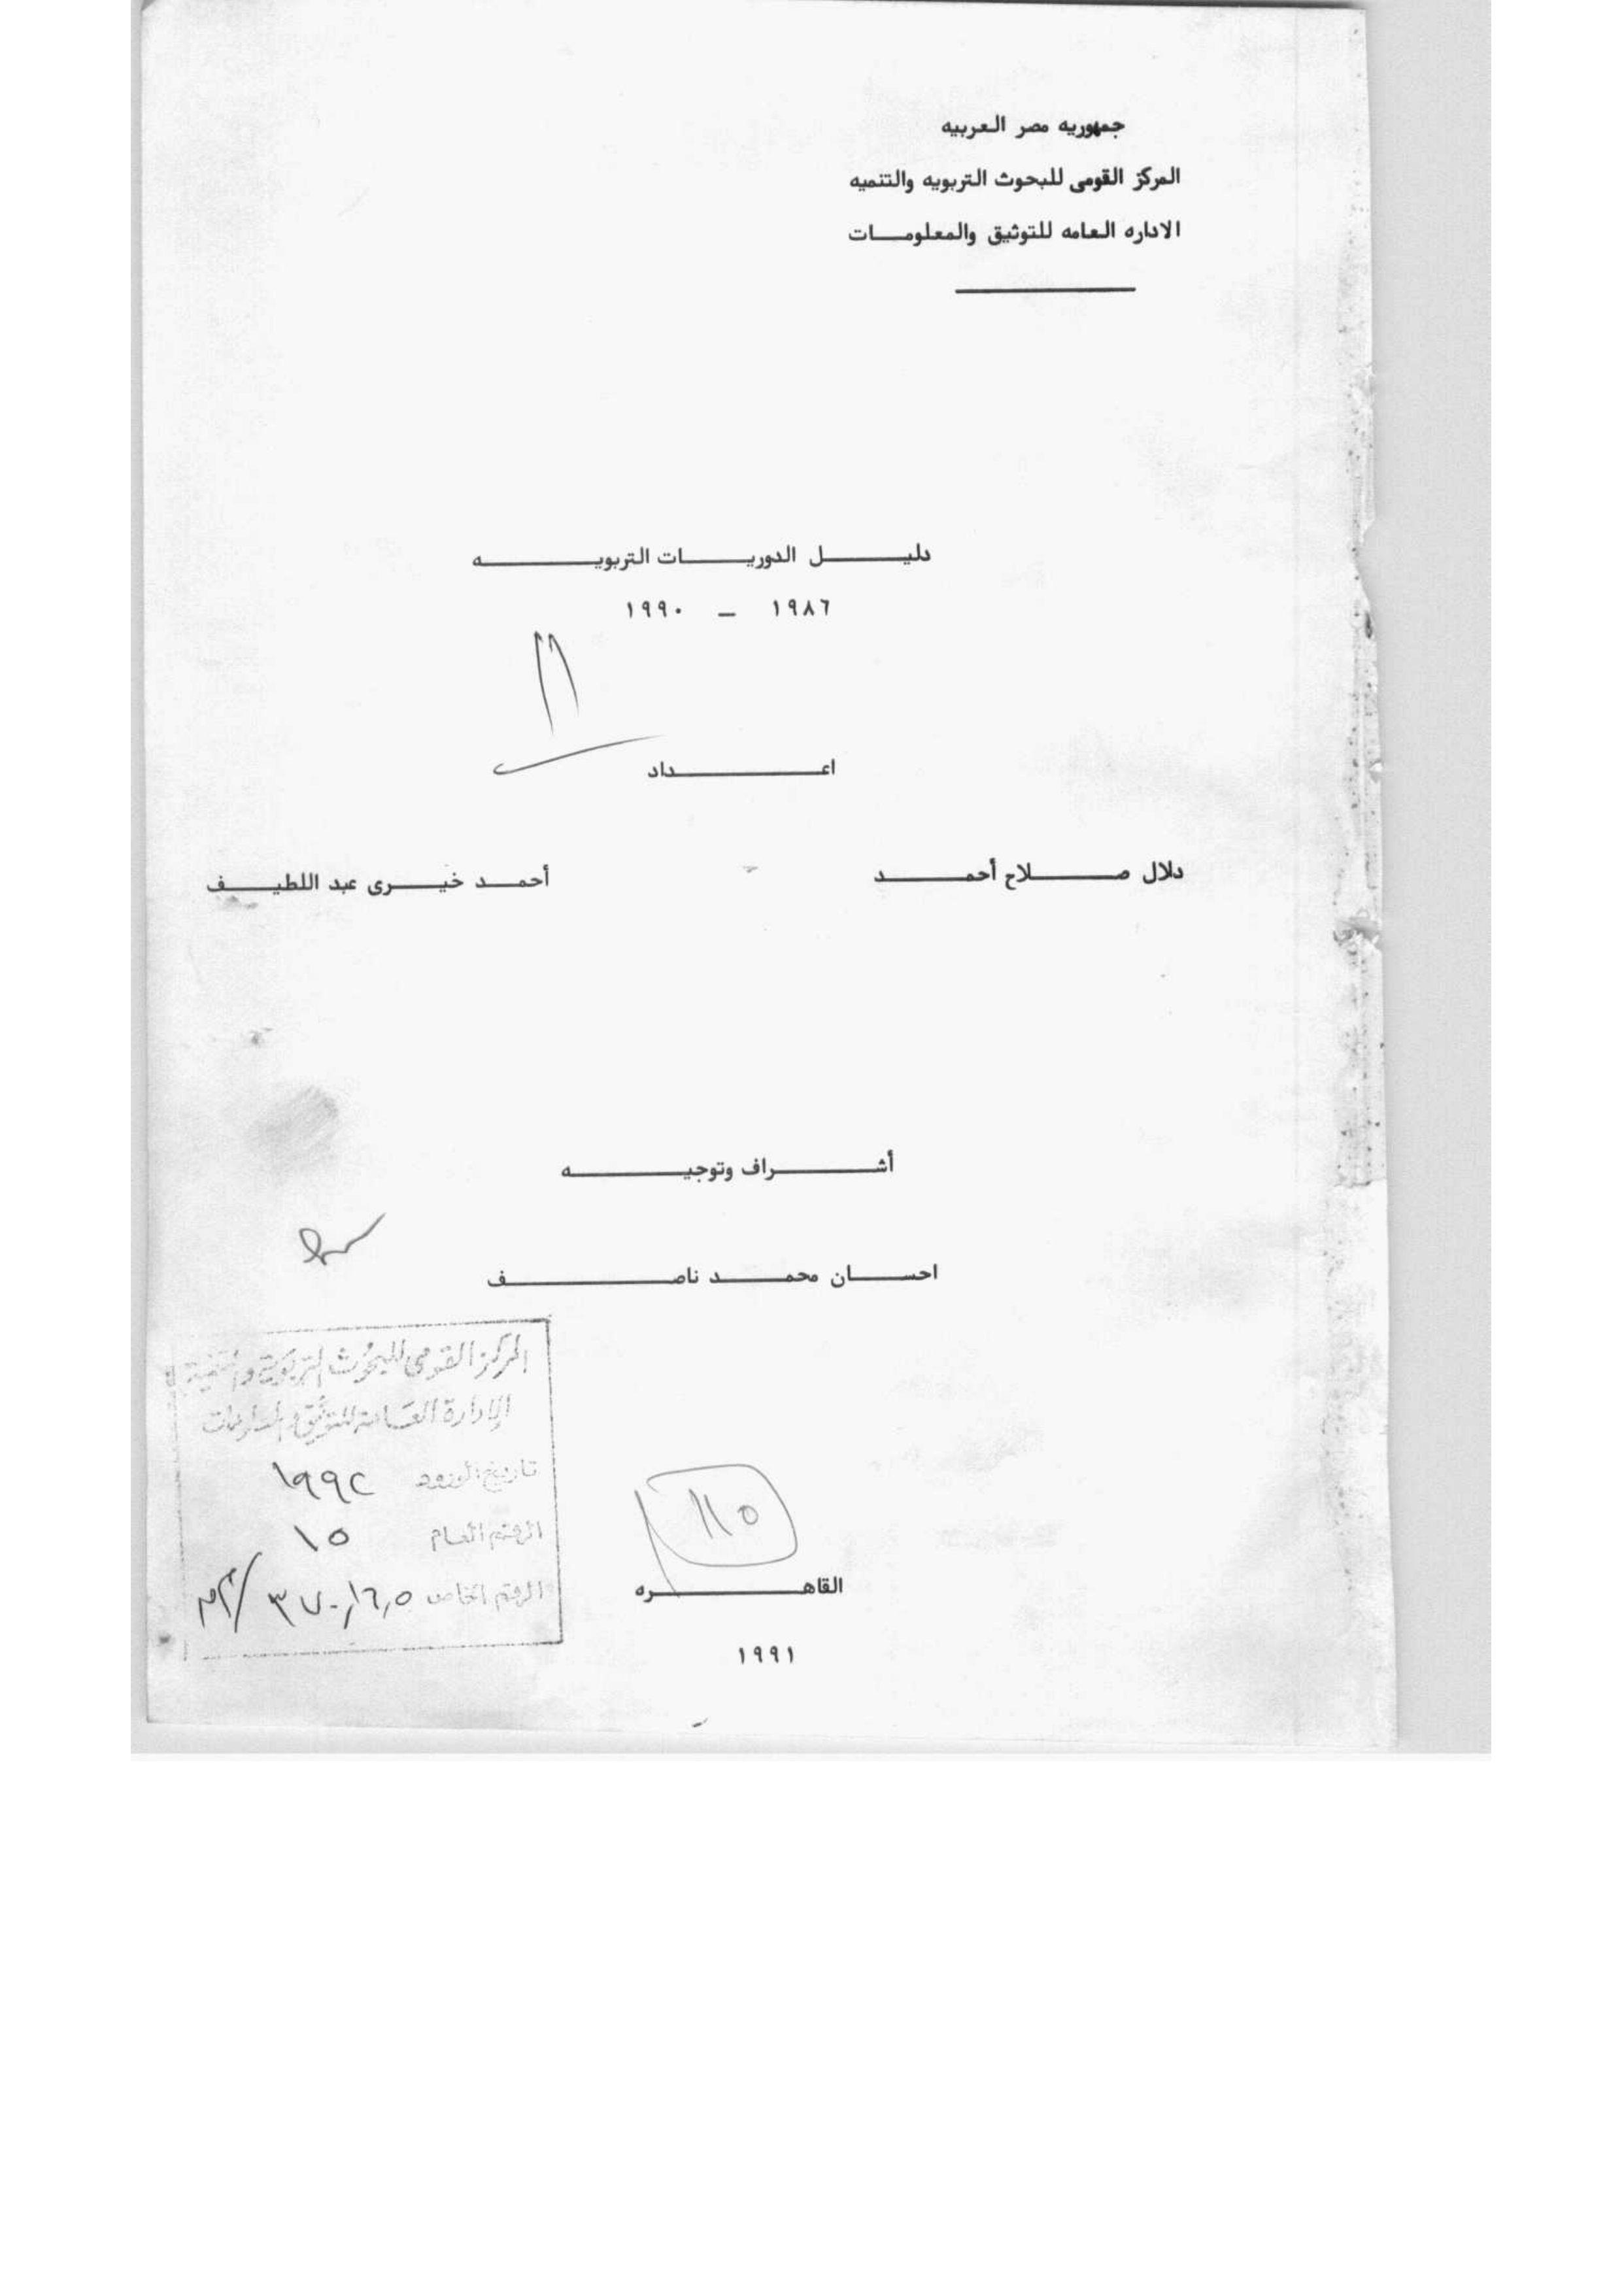 جمهوريه مصر العربيه
المركز القومى للبحوث التربويه والتنميه
الاداره العامه للتوثيق والمعلومــات
دليــــل الدوريـــات التربويـــــه
١٩٨٦ – ١٩٩٠
١١
اعـــــــداد
دلال صـــــلاح أحمــــد
أحمــد خيـــرى عبد اللطيـــف
أشـــــراف وتوجيـــــه
احســـان محمــــد ناصــــــف
المركز القومى للبحوث التربوية والتنمية
الإدارة العامة للتوثيق والمعلومات
تاريخ الورود ١٩٩٢
الرقم العام ١٥
الرقم الخاص ٣٧٠,١٦,٥
١١٥
القاهـــــــره
١٩٩١